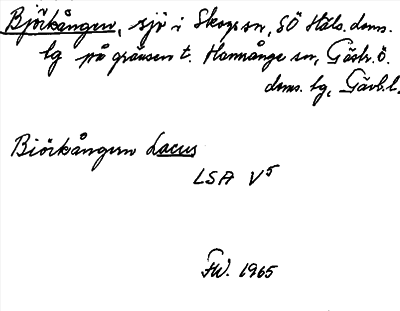 Björkången, sjö i Skogs sn, SÖ Häls. doms.
lg på gränsen t. Hamrånge sn, Gästr. Ö.
doms. lg, Gävb. l.
Biörkångern Lacus
LSA V⁵
FW. 1965